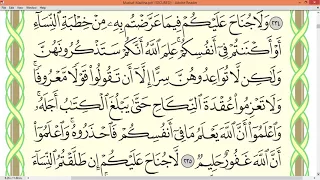 ٢٣٤ وَلَا جُنَاحَ عَلَيْكُمْ فِيمَا عَرَّضْتُم بِهِۦ مِنْ خِطْبَةِ ٱلنِّسَآءِ
أَوْ أَكْنَنتُمْ فِىٓ أَنفُسِكُمْ ۚ عَلِمَ ٱللَّهُ أَنَّكُمْ سَتَذْكُرُونَهُنَّ
وَلَٰكِن لَّا تُوَاعِدُوهُنَّ سِرًّا إِلَّآ أَن تَقُولُوا۟ قَوْلًا مَّعْرُوفًا ۚ
وَلَا تَعْزِمُوا۟ عُقْدَةَ ٱلنِّكَاحِ حَتَّىٰ يَبْلُغَ ٱلْكِتَٰبُ أَجَلَهُۥ ۚ
وَٱعْلَمُوٓا۟ أَنَّ ٱللَّهَ يَعْلَمُ مَا فِىٓ أَنفُسِكُمْ فَٱحْذَرُوهُ ۚ وَٱعْلَمُوٓا۟
أَنَّ ٱللَّهَ غَفُورٌ حَلِيمٌ ٢٣٥ لَّا جُنَاحَ عَلَيْكُمْ إِن طَلَّقْتُمُ ٱلنِّسَآءَ